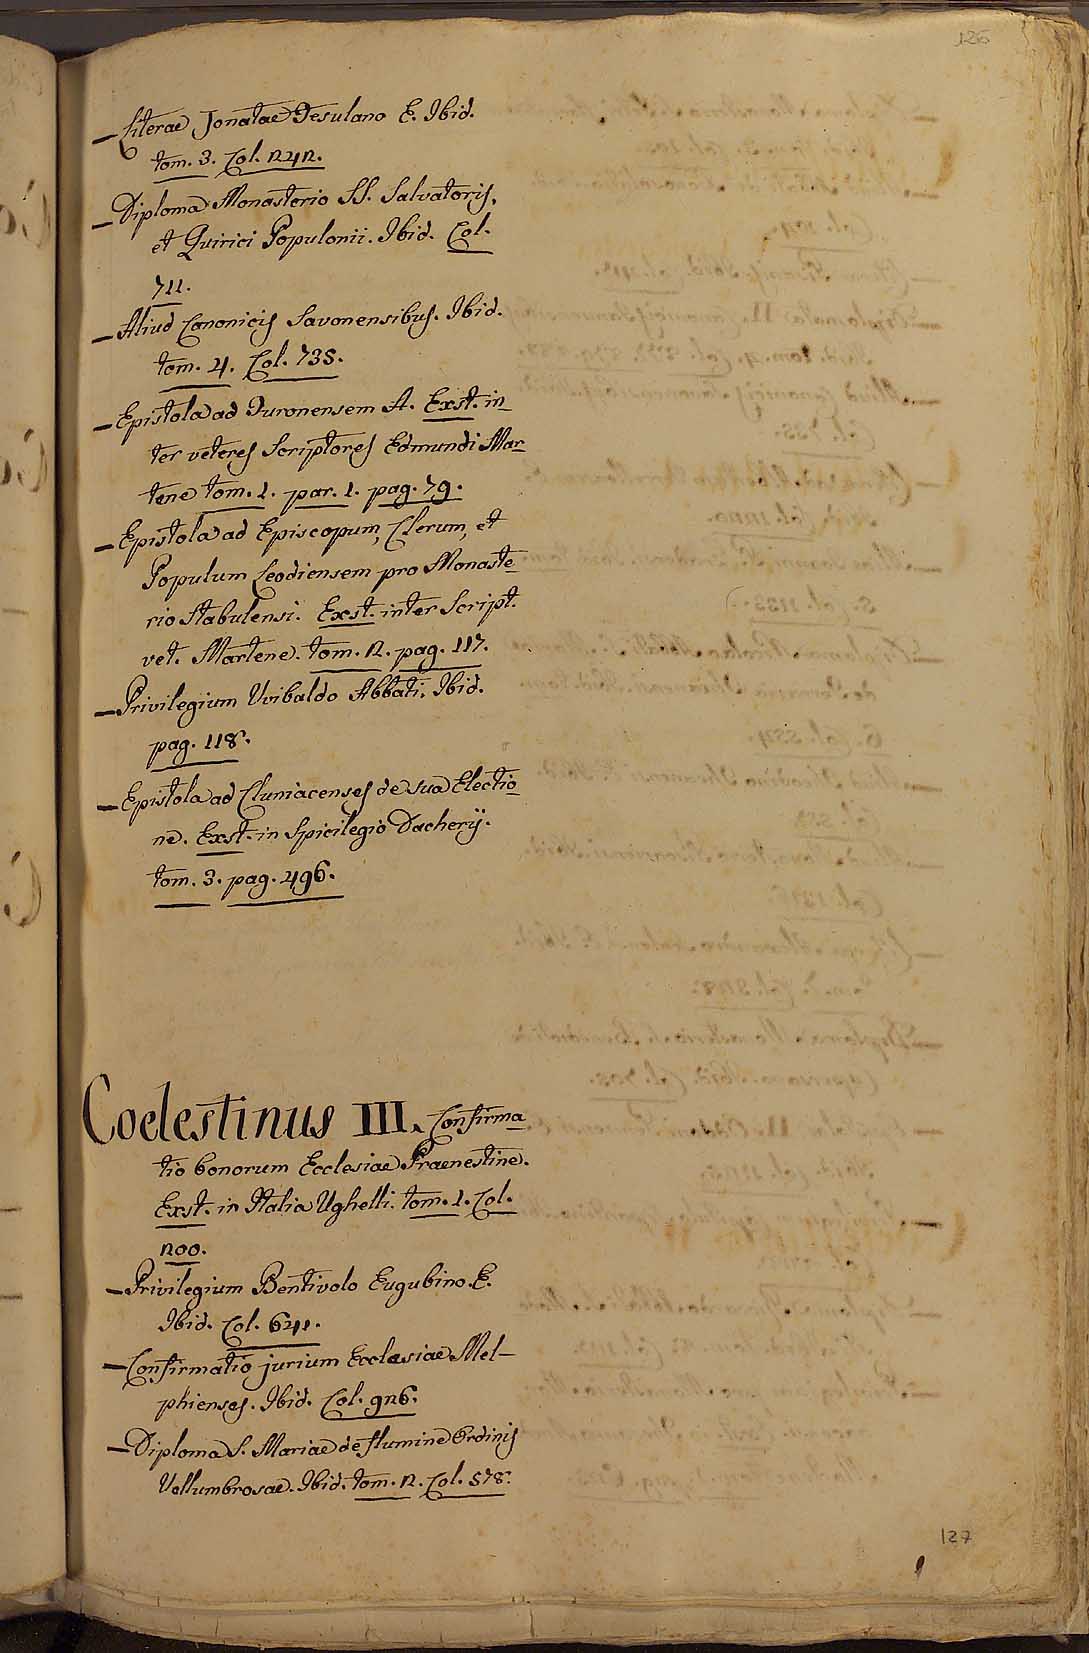 126
– Literae Jonatae Pesulano E. Ibid.
tom. 3. Col. 242.
– Diploma Monasterio SS. Salvatoris,
et Quirici Populonii. Ibid. Col.
711.
– Aliud Canonicis Savonensibus. Ibid.
tom. 4. Col. 735.
– Epistola ad Turonensem A. Exst. in_
ter veteres Scriptores Edmundi Mar_
tene tom. 1. par. 1. pag. 79.
– Epistola ad Episcopum, Clerum, et
Populum Leodiensem pro Monaste_
rio Stabulensi. Exst. inter Script.
vet. Martene. tom. 2. pag. 117.
– Privilegium Uvibaldo Abbati. Ibid.
pag. 118.
– Epistola ad Cluniacenses de sua Electio_
ne. Exst. in Spicilegio Dacherij.
tom. 3. pag. 496.
Coelestinus III. Confirma_
tio bonorum Ecclesiae Praenestine.
Exst. in Italia Ughelli. tom. 1. Col.
200.
– Privilegium Bentivolo Eugubino E.
Ibid. Col. 641.
– Confirmatio jurium Ecclesiae Mel–
phienses. Ibid. Col. 926.
– Diploma S. Mariae de flumine Ordinis
Vallumbrosae. Ibid. tom. 2. Col. 578.
127